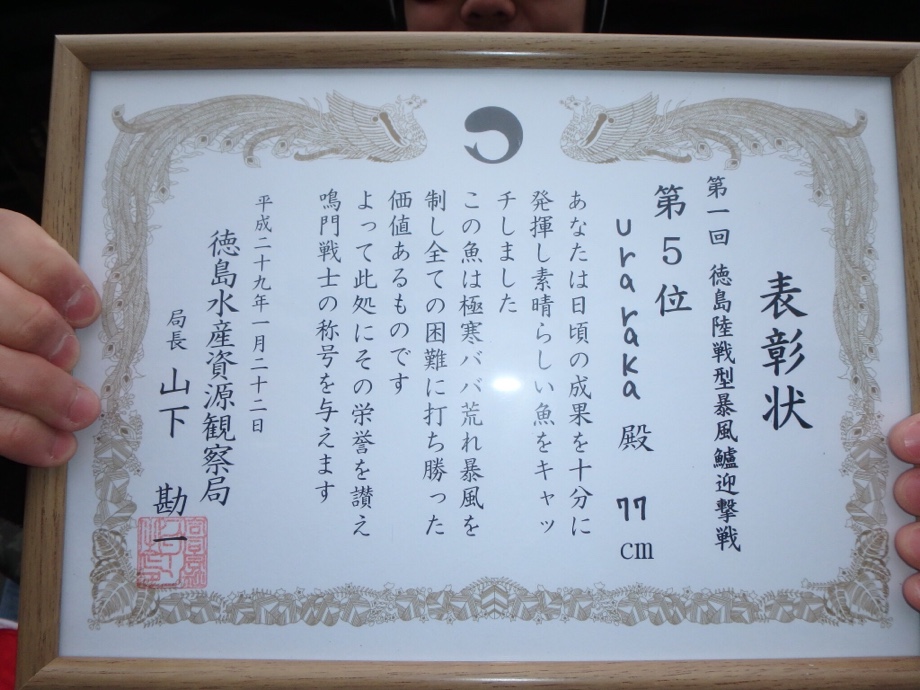 表彰状
第一回 徳島陸戦型暴風鱸迎撃戦
第5位
uraraka 殿 77cm
あなたは日頃の成果を十分に
発揮し素晴らしい魚をキャッ
チしました
この魚は極寒ババ荒れ暴風を
制し全ての困難に打ち勝った
価値あるものです
よって此処にその栄誉を讃え
鳴門戦士の称号を与えます
平成二十九年一月二十二日
徳島水産資源観察局
局長 山下 勘一